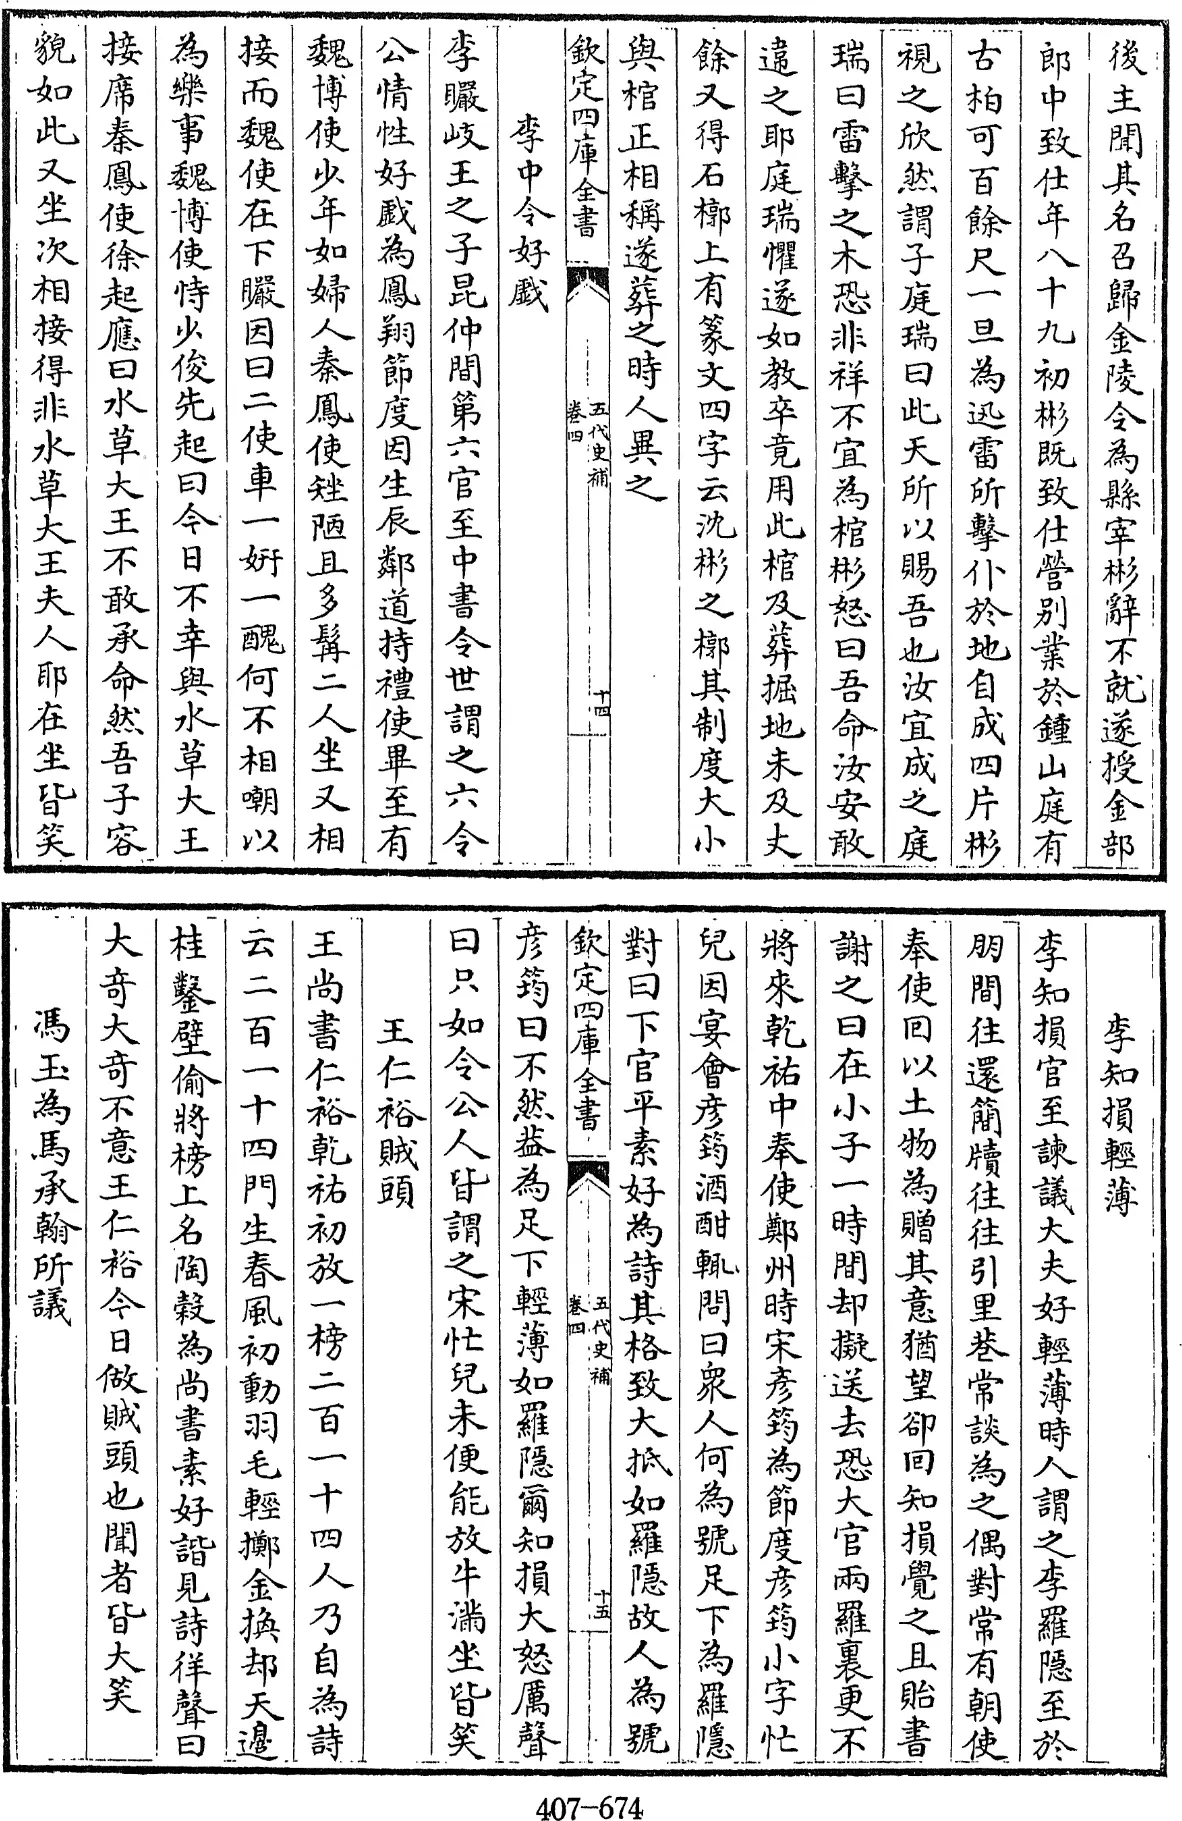 後主聞其名召歸金陵令為縣宰彬辭不就遂授金部
郎中致仕年八十九初彬既致仕營別業於鍾山庭有
古柏可百餘尺一旦為迅雷所擊仆於地自成四片彬
視之欣然謂子庭瑞曰此天所以賜吾也汝宜成之庭
瑞曰雷擊之木恐非祥不宜為棺彬怒曰吾命汝安敢
違之耶庭瑞懼遂如教卒竟用此棺及葬掘地未及丈
餘又得石槨上有篆文四字云沈彬之槨其制度大小
與棺正相稱遂葬之時人異之
欽定四庫全書
五代史補
卷四
十四
李中令好戲
李曮岐王之子昆仲間第六官至中書令世謂之六令
公情性好戲為鳳翔節度因生辰鄰道持禮使畢至有
魏博使少年如婦人秦鳳使矬陋且多髯二人坐又相
接而魏使在下曮因曰二使車一妍一醜何不相嘲以
為樂事魏博使恃少俊先起曰今日不幸與水草大王
接席秦鳳使徐起應曰水草大王不敢承命然吾子容
貌如此又坐次相接得非水草大王夫人耶在坐皆笑
李知損輕薄
李知損官至諫議大夫好輕薄時人謂之李羅隱至於
朋間往還簡牘往往引里巷常談為之偶對常有朝使
奉使回以土物為贈其意猶望卻回知損覺之且貽書
謝之曰在小子一時間却擬送去恐大官兩羅裏更不
將來乾祐中奉使鄭州時宋彦筠為節度彦筠小字忙
兒因宴會彦筠酒酣輒問曰衆人何為號足下為羅隱
對曰下官平素好為詩其格致大抵如羅隱故人為號
欽定四庫全書
五代史補
卷四
十五
彦筠曰不然葢為足下輕薄如羅隱爾知損大怒厲聲
曰只如令公人皆謂之宋忙兒未便能放牛滿坐皆笑
王仁裕賊頭
王尚書仁裕乾祐初放一榜二百一十四人乃自為詩
云二百一十四門生春風初動羽毛輕擲金換却天邊
桂鑿壁偷將榜上名陶榖為尚書素好諧見詩佯聲曰
大奇大奇不意王仁裕今日做賊頭也聞者皆大笑
馮玉為馬承翰所議
407-674